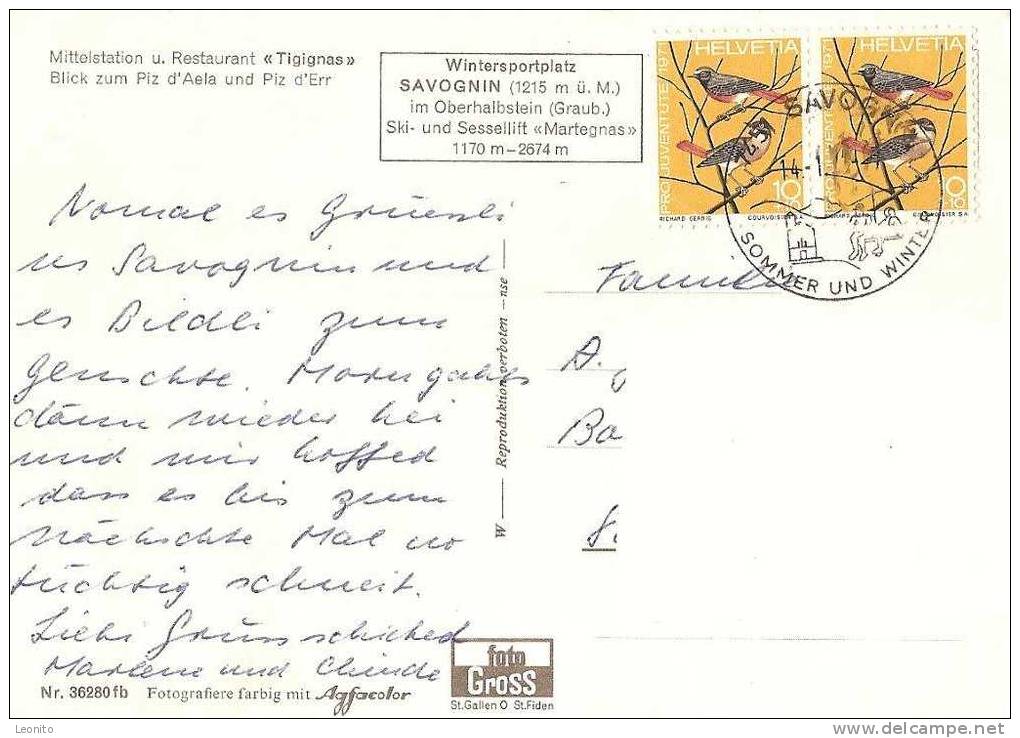 Mittelstation u. Restaurant «Tigignas»
Blick zum Piz d'Aela und Piz d'Err
Wintersportplatz
SAVOGNIN (1215 m ü. M.)
im Oberhalbstein (Graub.)
Ski- und Sessellift «Martegnas»
1170 m – 2674 m
HELVETIA
PRO JUVENTUTE 1971
10
RICHARD GERBIG COURVOISIER S.A.
HELVETIA
PRO JUVENTUTE 1971
10
COURVOISIER S.A.
7451 SAVOGNIN
14.-1
SOMMER UND WINTER
Nomal es Grüessli
us Savognin und
es Bildli zum
Morn
dänn wieder hei
und mir hoffed
dass es bis zum
nächschte Mal no
tüchtig schneit.
Liebi Grüss schicked
Marlene und
W — Reproduktion verboten — nse
Familie
A.
Ba
8.
Nr. 36280fb Fotografiere farbig mit Agfacolor
foto
Gross
St.Gallen O St.Fiden
Leonito
www.delcampe.net